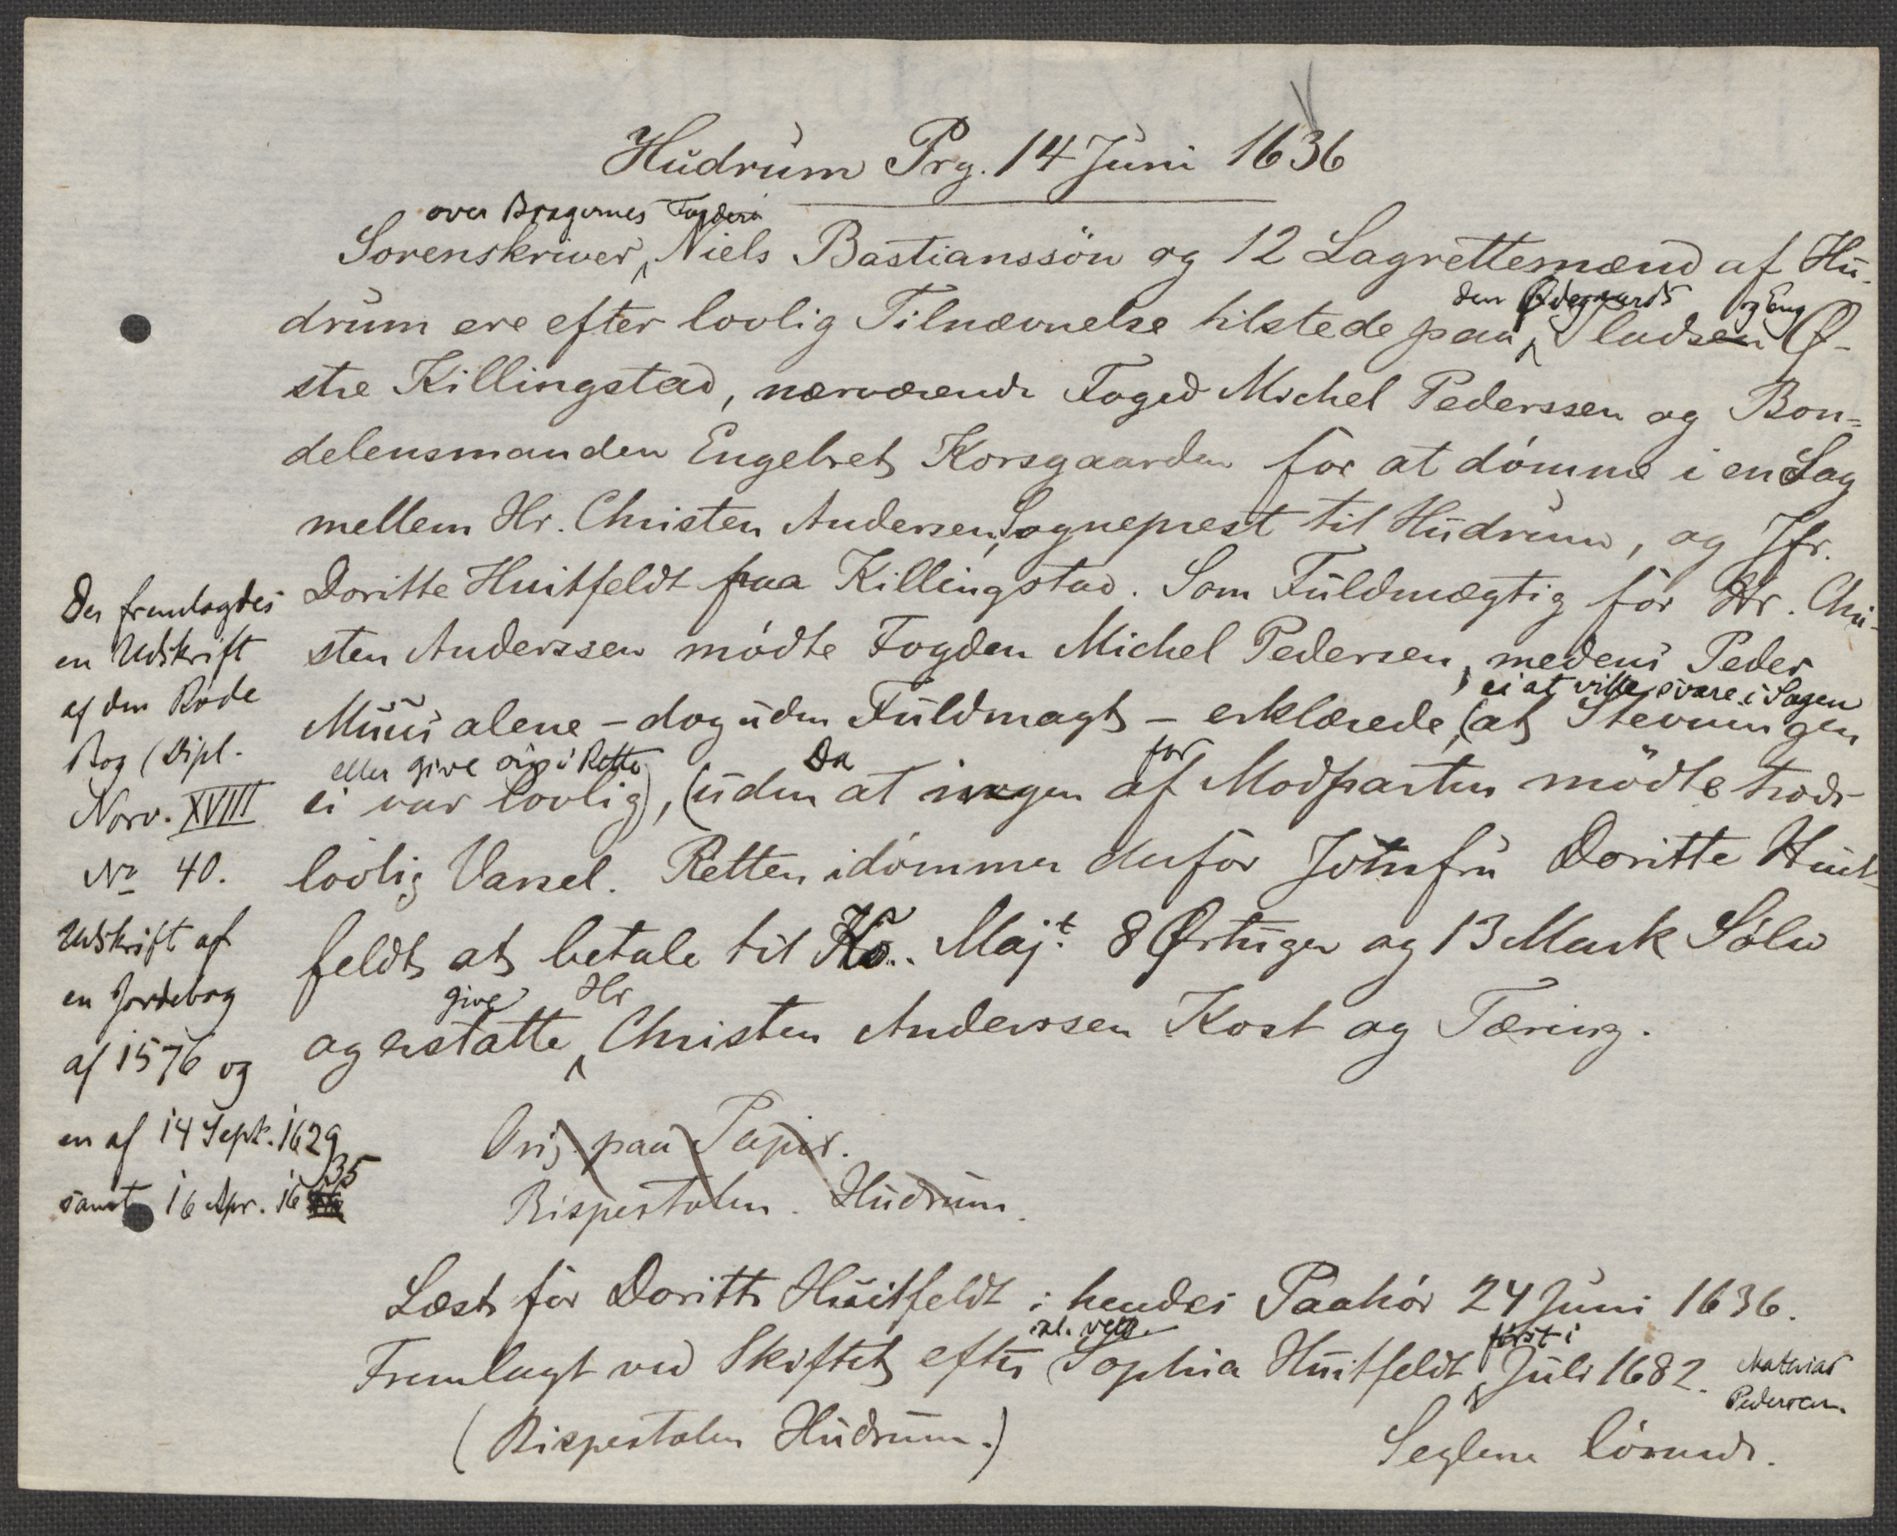 Hudrum Prg. 14 Juni 1636
over Bragernes Fogderi
Sorenskriver, Niels Bastianssön og 12 Lagrettemænd af Hu-
den Ödegaards og Eng
drum ere efter lovlig Tilnævnelse tilstede paa Pladsen Ø-
stre Killingstad, nærværende Foged Michel Pederssen og Bon-
delensmanden Engebret Korsgaarden for at dömme i en Sag
mellem Hr. Christen Andersen, Sogneprest til Hudrum, og Jfr.
Doritte Huitfeldt paa Killingstad. Som Fuldmægtig for Hr. Chri-
sten Anderssen mödte Fogden Michel Pedersen, medens Peder
ei at ville svare i Sagen
Muus alene - dog uden Fuldmagt - erklærede, (at Stevningen
eller give sig i Rette Da for
ei var lovlig), (uden at ingen af Modparten mödte trods
lovlig Varsel. Retten idömmer derfor Jomfru Doritte Huit-
feldt at betale til Ko. Maj.t 8 Örtuger og 13 Mark Sölv
give Hr
og erstatte Christen Anderssen Kost og Tæring.
Der fremlagdes
en Udskrift
af den Röde
Bog (Dipl.
Norv. XVIII
No 40.
Udskrift af
en Jordebog
af 1576 og
en af 14 Sept. 1629
35
samt 16 Apr. 16
Orig. paa Papir.
Bispestolen. Hudrum.
Læst for Doritte Huitfeldt i hendes Paahör 24 Juni 1636.
sal. först i
Fremlagt ved Skiftet efter Sophia Huitfeldt Juli 1682. Mathias
Pedersen.
(Bispestolen Hudrum.) Seglene lösnede.